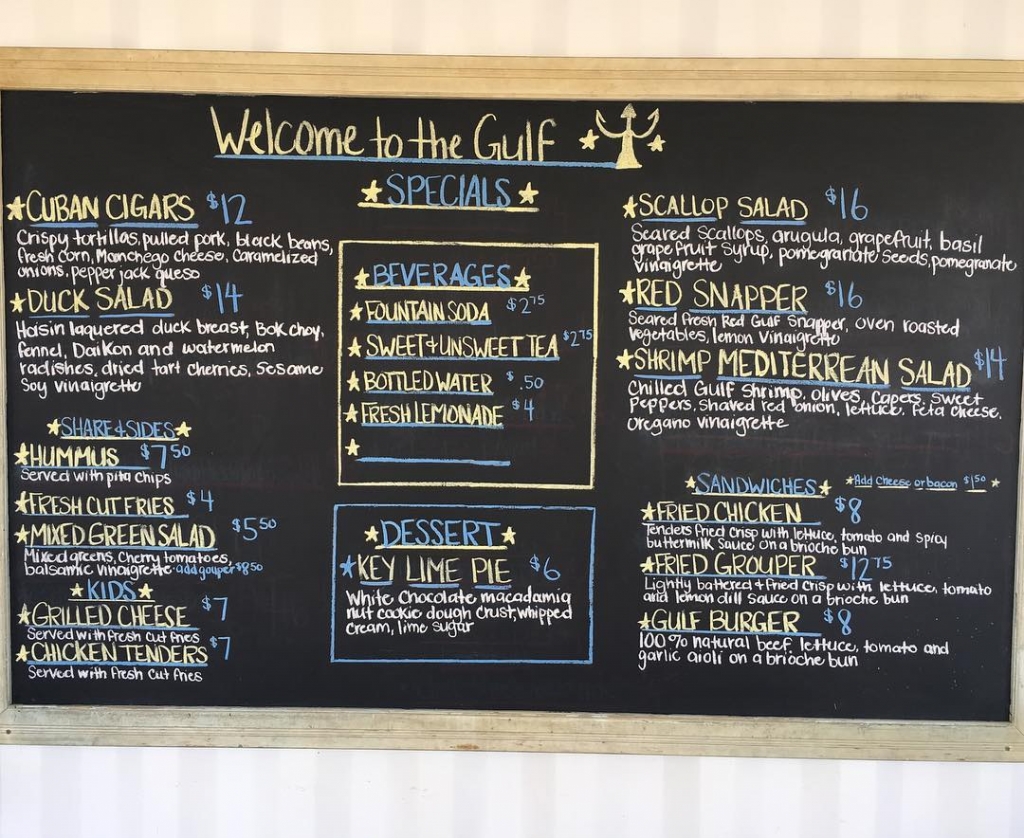 Welcome to the Gulf
SPECIALS
CUBAN CIGARS $12
Crispy tortillas, pulled pork, black beans,
fresh corn, Manchego cheese, Caramelized
onions, pepper jack queso
DUCK SALAD $14
Hoisin laquered duck breast, Bok choy,
fennel, Daikon and watermelon
radishes, dried tart cherries, Sesame
Soy Vinaigrette
SHARE & SIDES
HUMMUS $7.50
Served with pita chips
FRESH CUT FRIES $4
MIXED GREEN SALAD $5.50
Mixed greens, Cherry tomatoes,
balsamic vinaigrette - add grouper $8.50
KIDS
GRILLED CHEESE $7
Served with Fresh Cut fries
CHICKEN TENDERS $7
Served with Fresh Cut fries
BEVERAGES
FOUNTAIN SODA $2.75
SWEET & UNSWEET TEA $2.75
BOTTLED WATER $.50
FRESH LEMONADE $4
DESSERT
KEY LIME PIE $6
White Chocolate macadamia
nut cookie dough crust, whipped
Cream, lime sugar
SCALLOP SALAD $16
Seared Scallops, arugula, grapefruit, basil
grapefruit Syrup, pomegranate Seeds, pomegranate
Vinaigrette
RED SNAPPER $16
Seared Fresh Red Gulf Snapper, oven roasted
vegetables, lemon Vinaigrette
SHRIMP MEDITERREAN SALAD $14
Chilled Gulf Shrimp, Olives, Capers, Sweet
Peppers, Shaved red onion, lettuce, Feta Cheese,
Oregano vinaigrette
SANDWICHES *Add Cheese or bacon $1.50
FRIED CHICKEN $8
Tenders fried Crisp with lettuce, tomato and spicy
buttermilk Sauce on a brioche bun
FRIED GROUPER $12.75
Lightly battered & fried Crisp with lettuce, tomato
and lemon dill Sauce on a brioche bun
GULF BURGER $8
100% natural beef, lettuce, tomato and
garlic aioli on a brioche bun